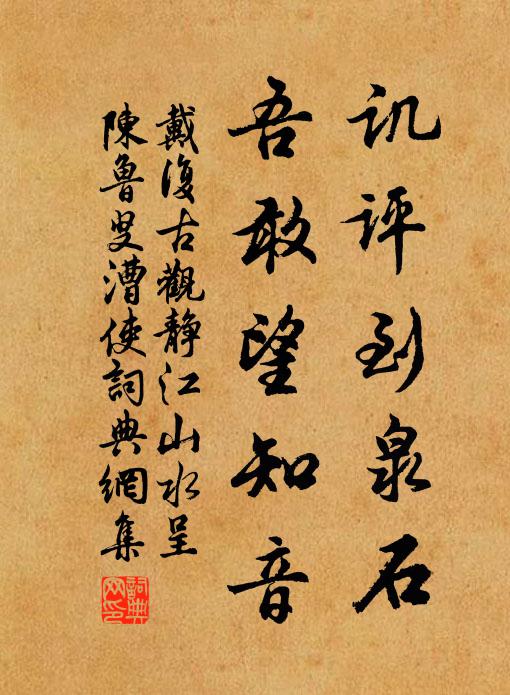 讥评到泉石
吾敢望知音
戴復古觀静江山水呈
陳魯叟漕使詞典網集
詞典網印